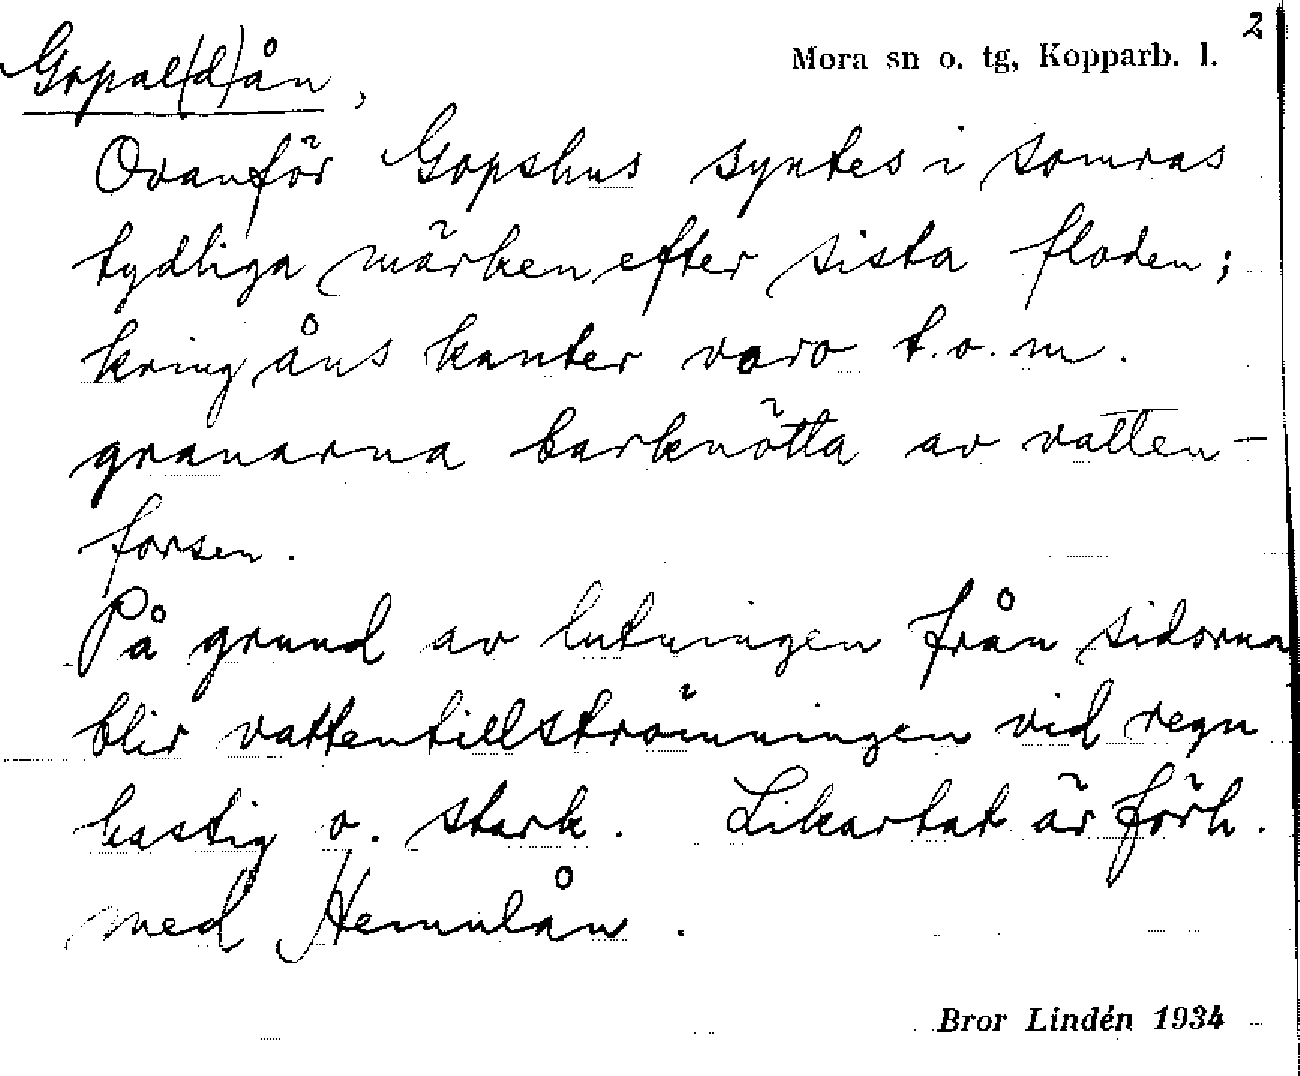 2
Mora sn o. tg, Kopparb. l.
Gopal(d)ån,
Ovanför Gopshus syntes i somras
tydliga märken efter sista floden;
kring åns kanter voro t.o.m.
granarna barknötta av vatten-
forsen.
På grund av lutningen från sidorna
blir vattentillströmningen vid regn
hastig o. stark. Likartat är förh.
med Hemulån.
Bror Lindén 1934